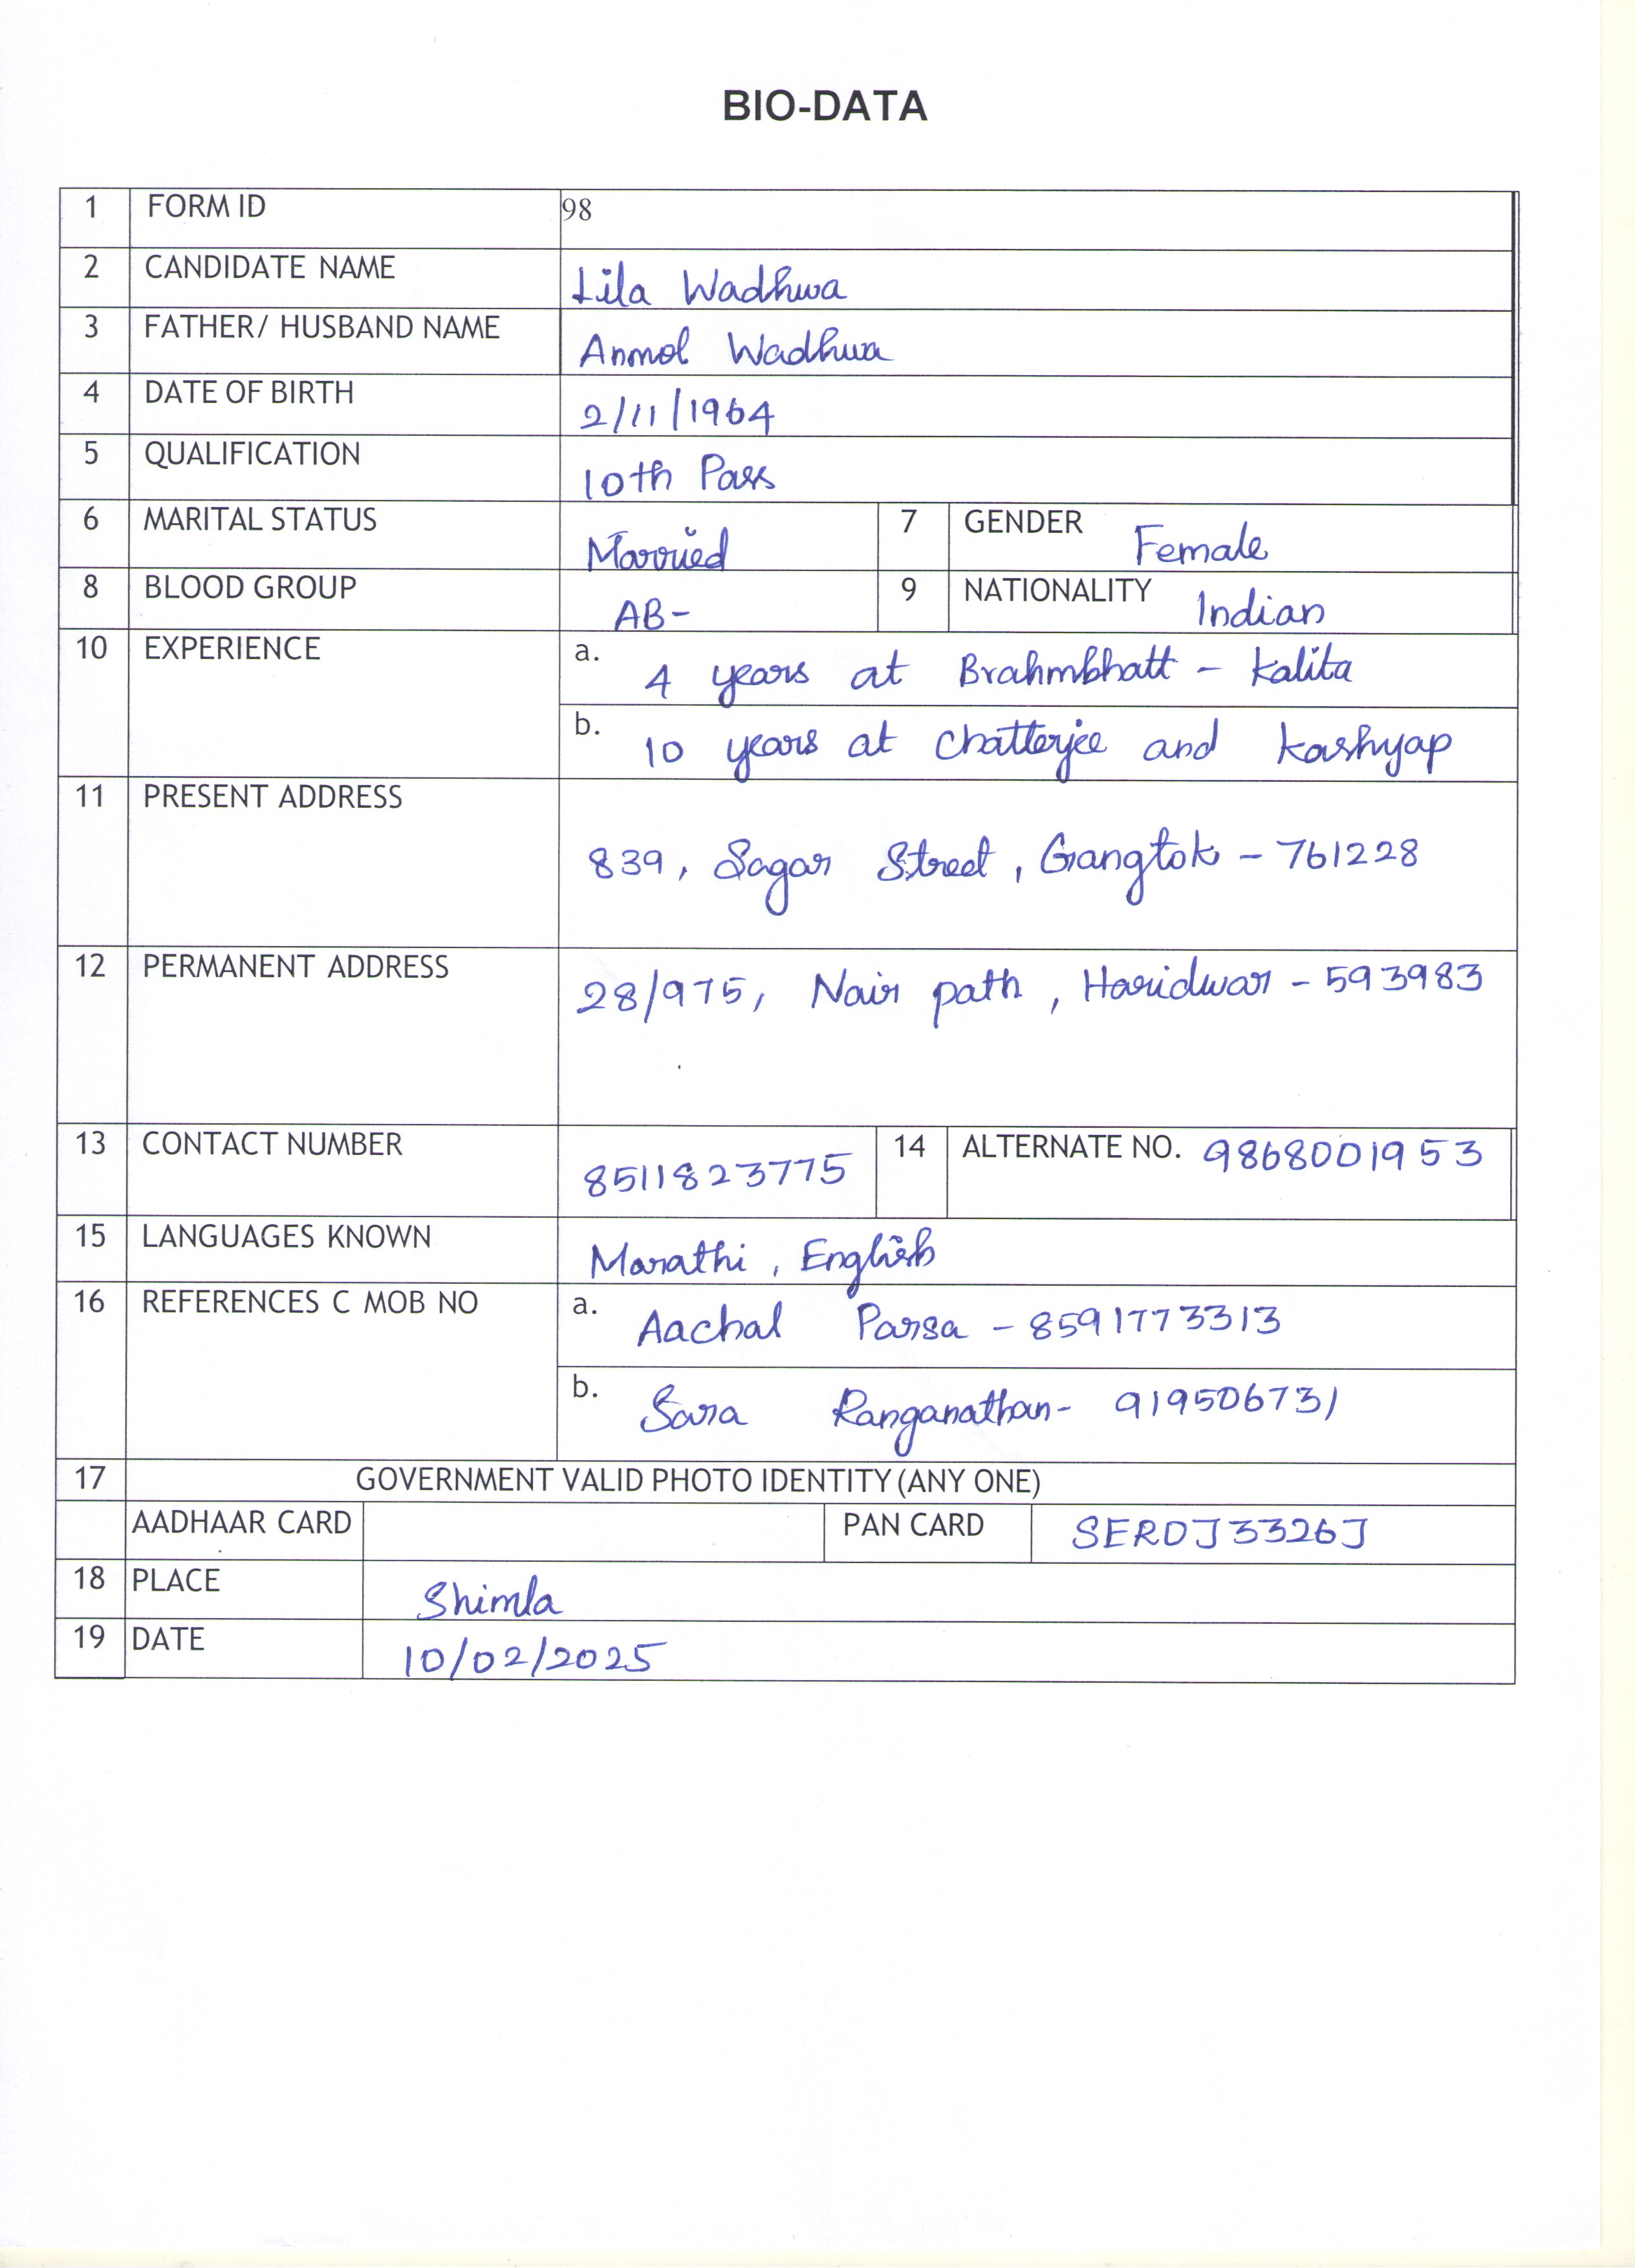 BIO-DATA
1 FORM ID 98
2 CANDIDATE NAME Lila Wadhwa
3 FATHER/ HUSBAND NAME Anmol Wadhwa
4 DATE OF BIRTH 2/11/1964
5 QUALIFICATION 10th Pass
6 MARITAL STATUS Married 7 GENDER Female
8 BLOOD GROUP AB- 9 NATIONALITY Indian
10 EXPERIENCE a. 4 years at Brahmbhatt - Kalita
b. 10 years at Chatterjee and Kashyap
11 PRESENT ADDRESS
839, Sagar Street, Gangtok - 761228
12 PERMANENT ADDRESS 28/975, Nair path, Haridwar - 593983
13 CONTACT NUMBER 8511823775 14 ALTERNATE NO. 9868001953
15 LANGUAGES KNOWN Marathi, English
16 REFERENCES C MOB NO a. Aachal Parsa - 8591773313
b. Sara Ranganathan- 919506731
17 GOVERNMENT VALID PHOTO IDENTITY (ANY ONE)
AADHAAR CARD PAN CARD SERDJ3326J
18 PLACE Shimla
19 DATE 10/02/2025